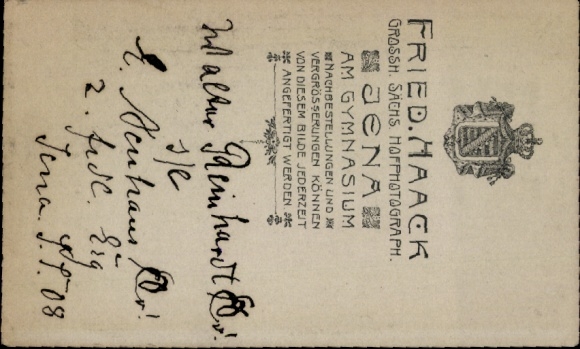 FRIED. HAACK
GROSSH. SÄCHS. HOFPHOTOGRAPH.
JENA
AM GYMNASIUM
NACHBESTELLUNGEN UND
VERGRÖSSERUNGEN KÖNNEN
VON DIESEM BILDE JEDERZEIT
ANGEFERTIGT WERDEN.
Walter Reinhardt
s/l
E. Neuhaus
z. frdl. Erg
Jena. S.S. 08